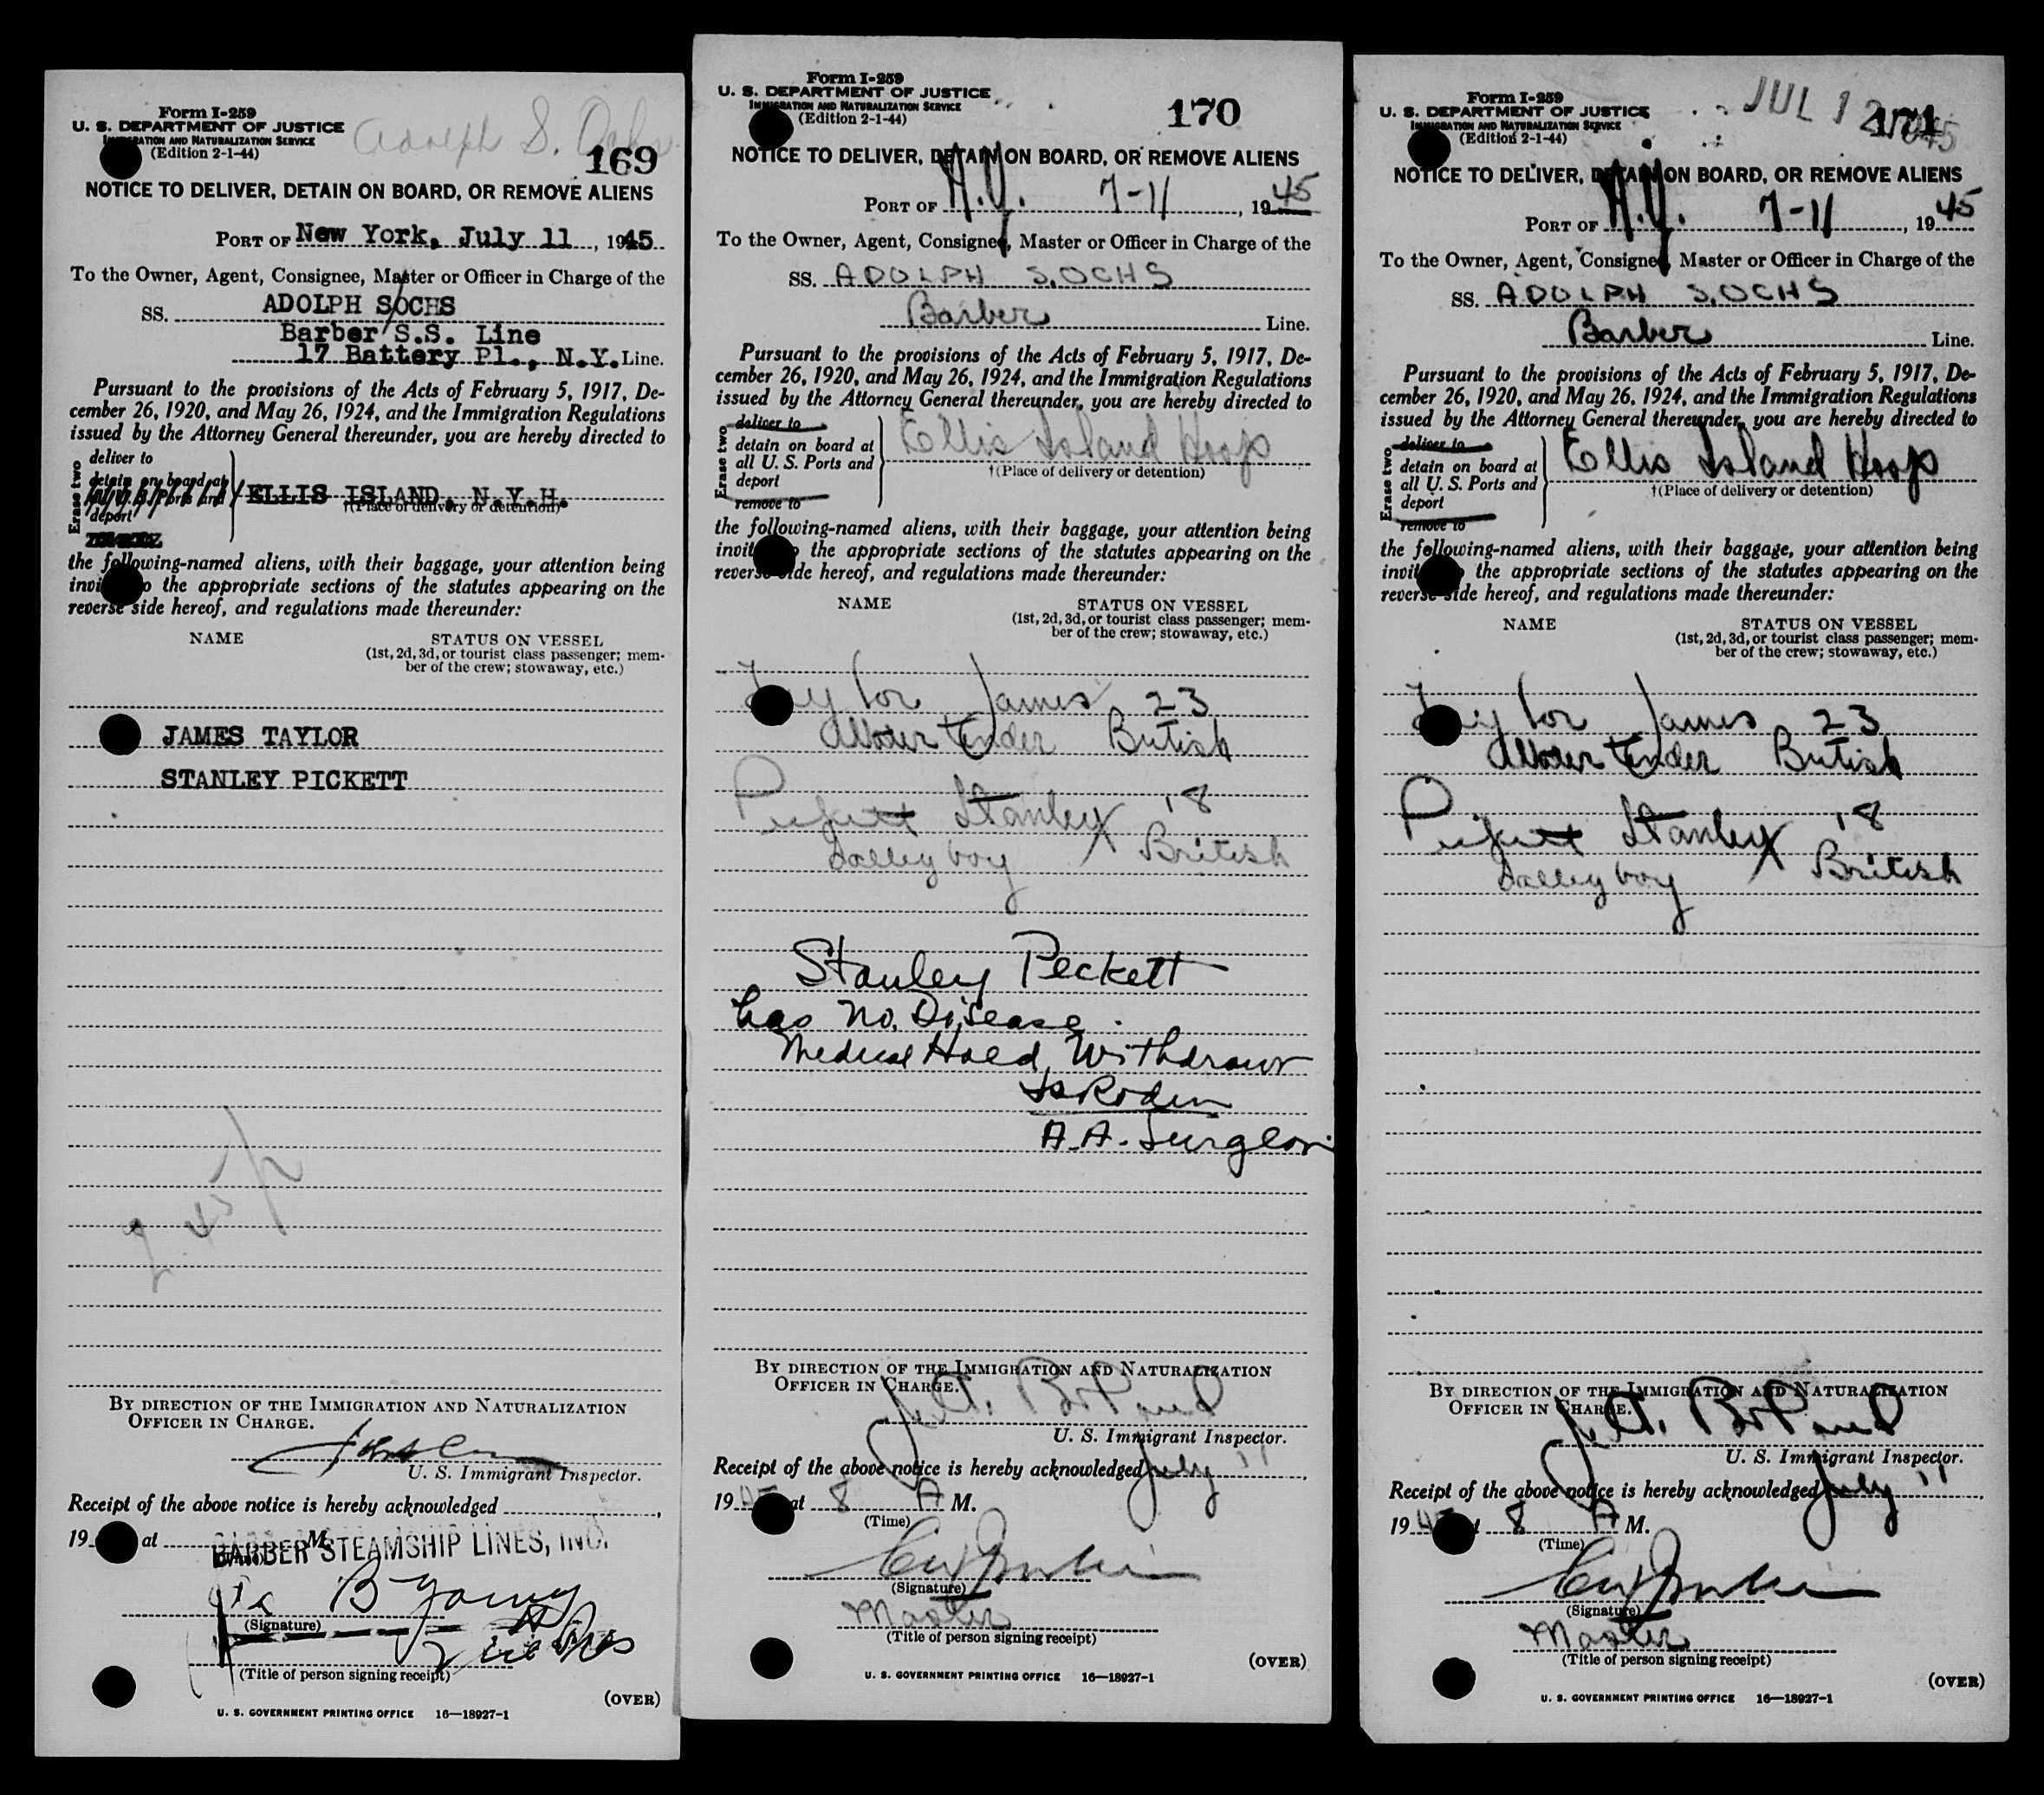 Form I-259
U. S. DEPARTMENT OF JUSTICE
IMMIGRATION AND NATURALIZATION SERVICE
(Edition 2-1-44)
Adolph S. Ochs
169
NOTICE TO DELIVER, DETAIN ON BOARD, OR REMOVE ALIENS
PORT OF New York, July 11, 1945
To the Owner, Agent, Consignee, Master or Officer in Charge of the
SS. ADOLPH S/OCHS
Barber S.S. Line
17 Battery Pl., N.Y. Line.
Pursuant to the provisions of the Acts of February 5, 1917, De-
cember 26, 1920, and May 26, 1924, and the Immigration Regulations
issued by the Attorney General thereunder, you are hereby directed to
Erase two
deliver to
detain on board at
all U. S. Ports and
deport
ELLIS ISLAND, N.Y.H.
†(Place of delivery or detention)
the following-named aliens, with their baggage, your attention being
invited to the appropriate sections of the statutes appearing on the
reverse side hereof, and regulations made thereunder:
NAME STATUS ON VESSEL
(1st, 2d, 3d, or tourist class passenger; mem-
ber of the crew; stowaway, etc.)
JAMES TAYLOR
STANLEY PICKETT
BY DIRECTION OF THE IMMIGRATION AND NATURALIZATION
OFFICER IN CHARGE.
U. S. Immigrant Inspector.
Receipt of the above notice is hereby acknowledged
19 at M.
BARBER STEAMSHIP LINES, INC.
B Young
(Signature)
(Title of person signing receipt)
(OVER)
U. S. GOVERNMENT PRINTING OFFICE 16—18927-1
Form I-259
U. S. DEPARTMENT OF JUSTICE
IMMIGRATION AND NATURALIZATION SERVICE
(Edition 2-1-44)
170
NOTICE TO DELIVER, DETAIN ON BOARD, OR REMOVE ALIENS
PORT OF N.Y. 7-11, 1945
To the Owner, Agent, Consignee, Master or Officer in Charge of the
SS. ADOLPH S. OCHS
Barber Line.
Pursuant to the provisions of the Acts of February 5, 1917, De-
cember 26, 1920, and May 26, 1924, and the Immigration Regulations
issued by the Attorney General thereunder, you are hereby directed to
Erase two
deliver to
detain on board at
all U. S. Ports and
deport
remove to
Ellis Island Hosp
†(Place of delivery or detention)
the following-named aliens, with their baggage, your attention being
invited to the appropriate sections of the statutes appearing on the
reverse side hereof, and regulations made thereunder:
NAME STATUS ON VESSEL
(1st, 2d, 3d, or tourist class passenger; mem-
ber of the crew; stowaway, etc.)
Taylor James 23
Water Tender British
Pickett Stanley 18
Galley boy British
Stanley Peckett
has No. Disease.
Medical Hold Withdrawn
A.A. Surgeon
BY DIRECTION OF THE IMMIGRATION AND NATURALIZATION
OFFICER IN CHARGE.
U. S. Immigrant Inspector.
Receipt of the above notice is hereby acknowledged July 11,
1945 at 8 A M.
(Time)
(Signature)
Master
(Title of person signing receipt)
(OVER)
U. S. GOVERNMENT PRINTING OFFICE 16—18927-1
Form I-259
U. S. DEPARTMENT OF JUSTICE
IMMIGRATION AND NATURALIZATION SERVICE
(Edition 2-1-44)
JUL 12 1945
171
NOTICE TO DELIVER, DETAIN ON BOARD, OR REMOVE ALIENS
PORT OF N.Y. 7-11, 1945
To the Owner, Agent, Consignee, Master or Officer in Charge of the
SS. ADOLPH S. OCHS
Barber Line.
Pursuant to the provisions of the Acts of February 5, 1917, De-
cember 26, 1920, and May 26, 1924, and the Immigration Regulations
issued by the Attorney General thereunder, you are hereby directed to
Erase two
deliver to
detain on board at
all U. S. Ports and
deport
remove to
Ellis Island Hosp
†(Place of delivery or detention)
the following-named aliens, with their baggage, your attention being
invited to the appropriate sections of the statutes appearing on the
reverse side hereof, and regulations made thereunder:
NAME STATUS ON VESSEL
(1st, 2d, 3d, or tourist class passenger; mem-
ber of the crew; stowaway, etc.)
Taylor James 23
Water Tender British
Pickett Stanley 18
Galley boy British
BY DIRECTION OF THE IMMIGRATION AND NATURALIZATION
OFFICER IN CHARGE.
U. S. Immigrant Inspector.
Receipt of the above notice is hereby acknowledged July 11,
1945 at 8 A M.
(Time)
(Signature)
Master
(Title of person signing receipt)
(OVER)
U. S. GOVERNMENT PRINTING OFFICE 16—18927-1